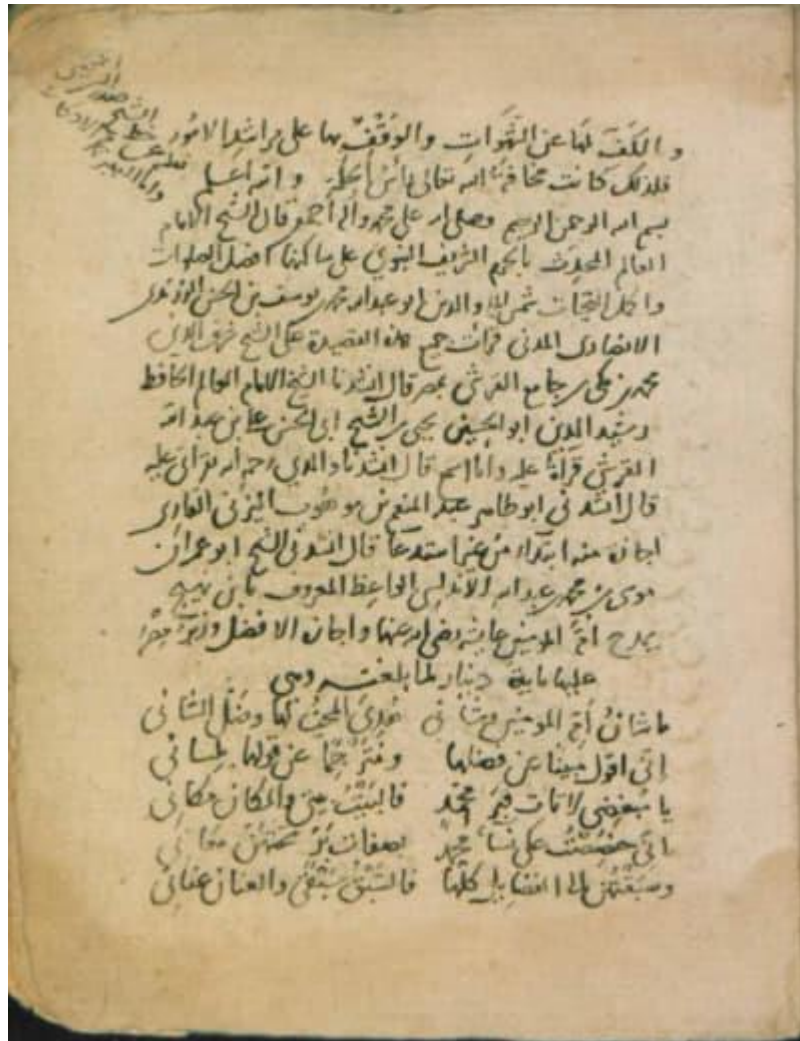 والكفّ لها عن الشهوات والوقف بها على مراشد الامور
فلذلك كانت مخافة الله تعالى رأس الحكمة والله اعلم
بسم الله الرحمن الرحيم وصلى الله على محمد واله اجمع قال الشيخ الامام
العالم المحدث بالحرم الشريف النبوي على ساكنها افضل الصلوات
واكمل التحيات شمس الدين ابو عبد الله محمد بن يوسف بن الحسن الزرندي
الانصارى المدنى قرات جميع هذه القصيدة على الشيخ شرف الدين
محمد بن جامع القرشي بمصر قال انشدنا الشيخ الامام العالم الحافظ
رشيد الدين ابو الحسين يحيى بن الشيخ ابى الحسن على بن عبد الله
القرشي قراة عليه وانا اسمع قال انشدنا والدي رحمه الله قراتى عليه
قال انشدنى ابو طاهر عبد المنعم بن موهوب القارى
اجازة منه ابتداء من غير استدعا قال انشدنى الشيخ ابو عمران
موسى بن محمد بن عبد الله الاندلسى الواعظ المعروف بابن بهيج
يمدح ام المومنين عايشه رضى الله عنها واجازه الافضل وزير مصر
عليها ماية دينار لما بلغته وهى
ما شانُ اُمّ المومنين وشانى هُدِىَ المحبّ لها وضلّ الشانى
انى اقول مبينا عن فضلها ومترجما عن قولها بلسانى
يا مبغضى لا تات قبر محمد فالبيت بيتى والمكان مكانى
انى خصصت على نساء محمد بصفات برّ تحتهن معانى
وسبقتهن الى الفضايل كلها فالسبق سبقى والعنان عنانى